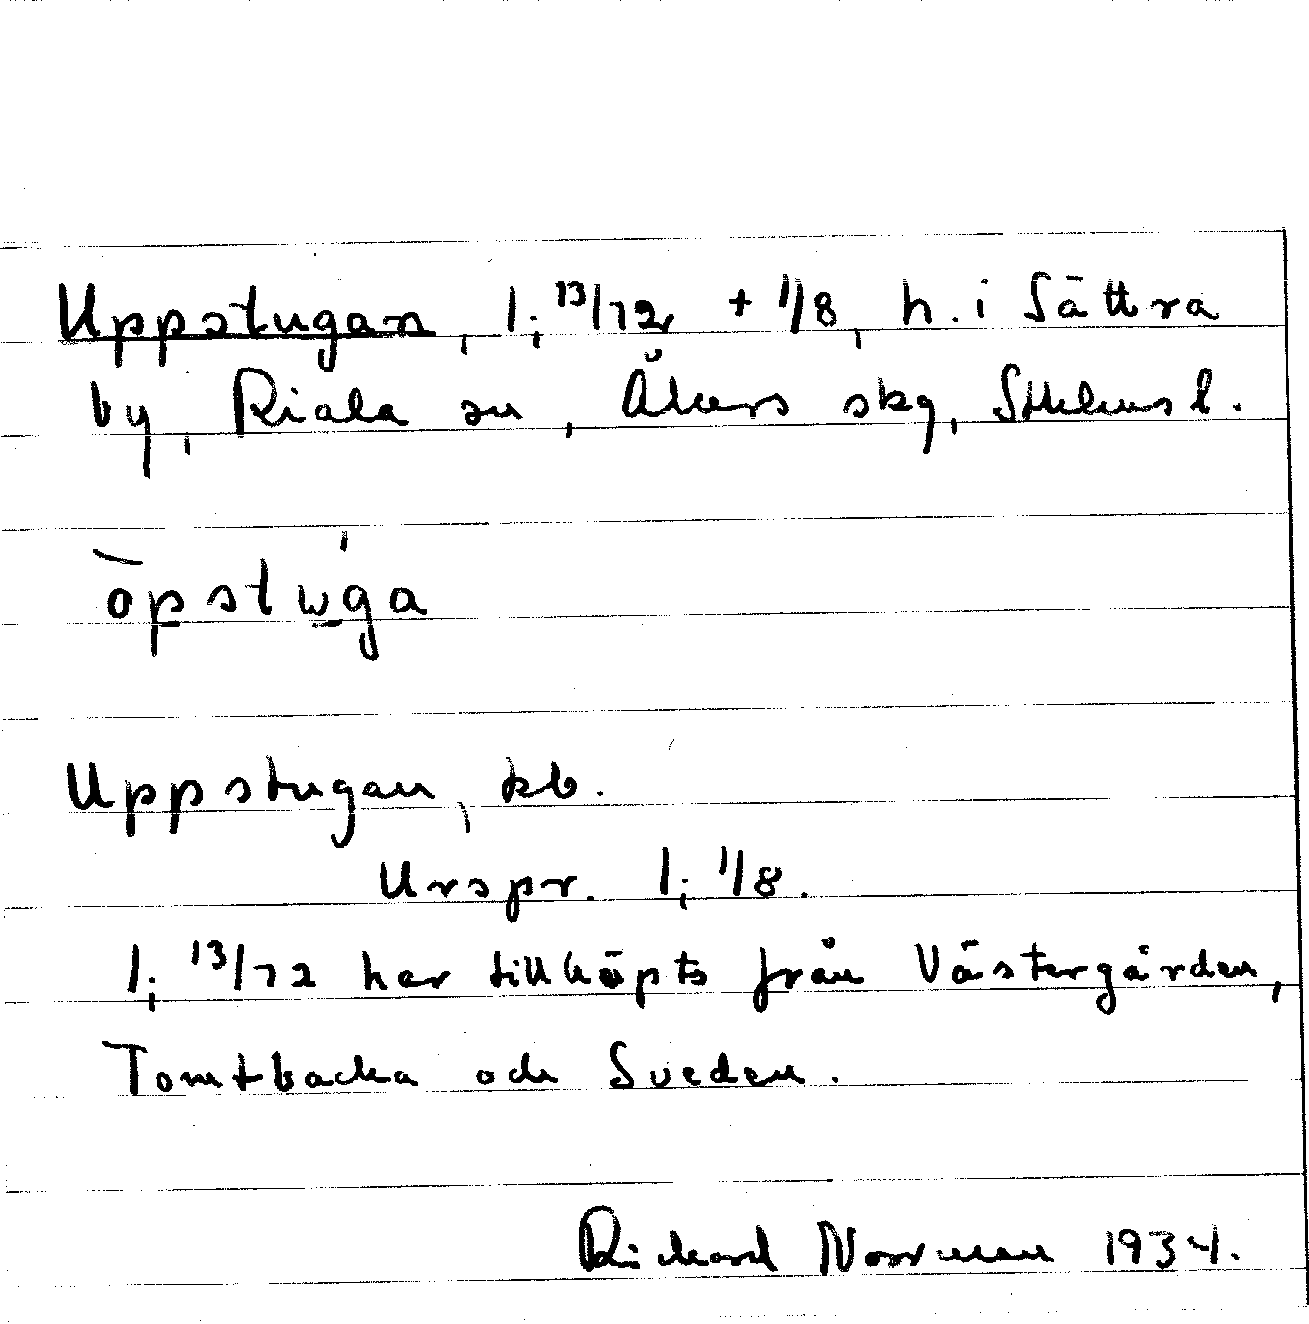 Uppstugan, 1; 13/72 + 1/8, h. i Sättra
by, Riala sn, Åkers skg, Sthlms l.
òpstu̲'ga
Uppstugan, kb.
Urspr. 1; 1/8.
1; 13/72 har tillköpts från Västergården,
Tomtbacka och Sveden.
Richard Norrman 1934.